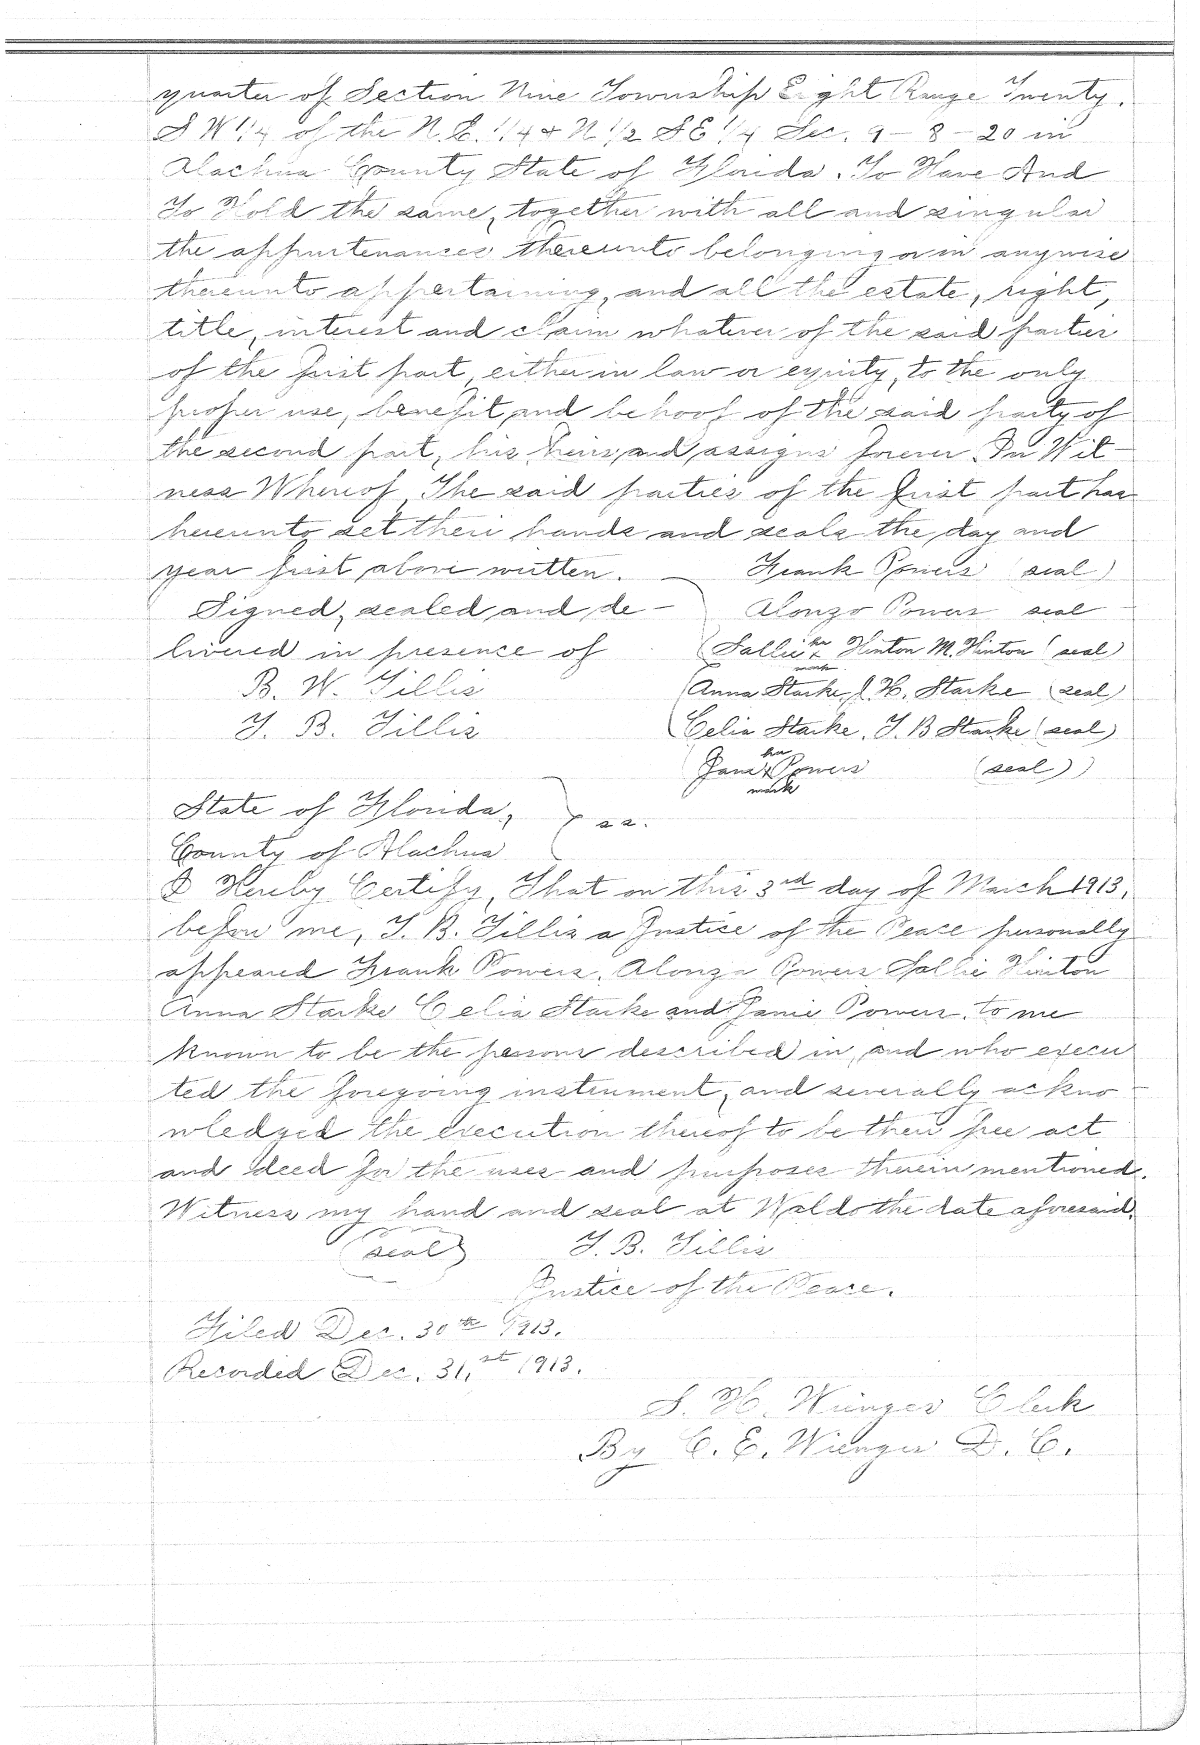 quarter of Section Nine Township Eight Range Twenty.
S W 1/4 of the N.E. 1/4 & N 1/2 SE 1/4 Sec. 9 - 8 - 20 in
Alachua County State of Florida. To Have And
To Hold the same, together with all and singular
the appurtenances thereunto belonging or in anywise
thereunto appertaining, and all the estate, right,
title, interest and claim whatever of the said parties
of the first part, either in law or equity, to the only
proper use, benefit and behoof of the said party of
the second part, his heirs and assigns forever. In Wit-
ness Whereof, The said parties of the first part has
hereunto set their hands and seals the day and
year first above written. Frank Powers (seal)
Signed, sealed and de- Alonzo Powers seal
livered in presence of (Sallie her x mark Hinton M. Hinton (seal)
B. W. Tillis (Anna Starke, J. H. Starke (seal)
T. B. Tillis (Celia Starke, T. B Starke (seal)
(Jane her x mark Powers (seal))
State of Florida,
County of Alachua } ss.
I Hereby Certify, That on this 3rd day of March 1913,
before me, T. B. Tillis a Justice of the Peace personally
appeared Frank Powers, Alonza Powers Sallie Hinton
Anna Starke Celia Starke and Janie Powers, to me
known to be the persons described in, and who execu
ted the foregoing instrument, and severally ackno-
wledged the execution thereof to be their free act
and deed for the uses and purposes therein mentioned.
Witness my hand and seal at Waldo the date aforesaid.
(seal) T. B. Tillis
Justice of the Peace.
Filed Dec. 30th 1913.
Recorded Dec. 31,st 1913.
S. H. Wienges Clerk
By C. E. Wienges D. C.